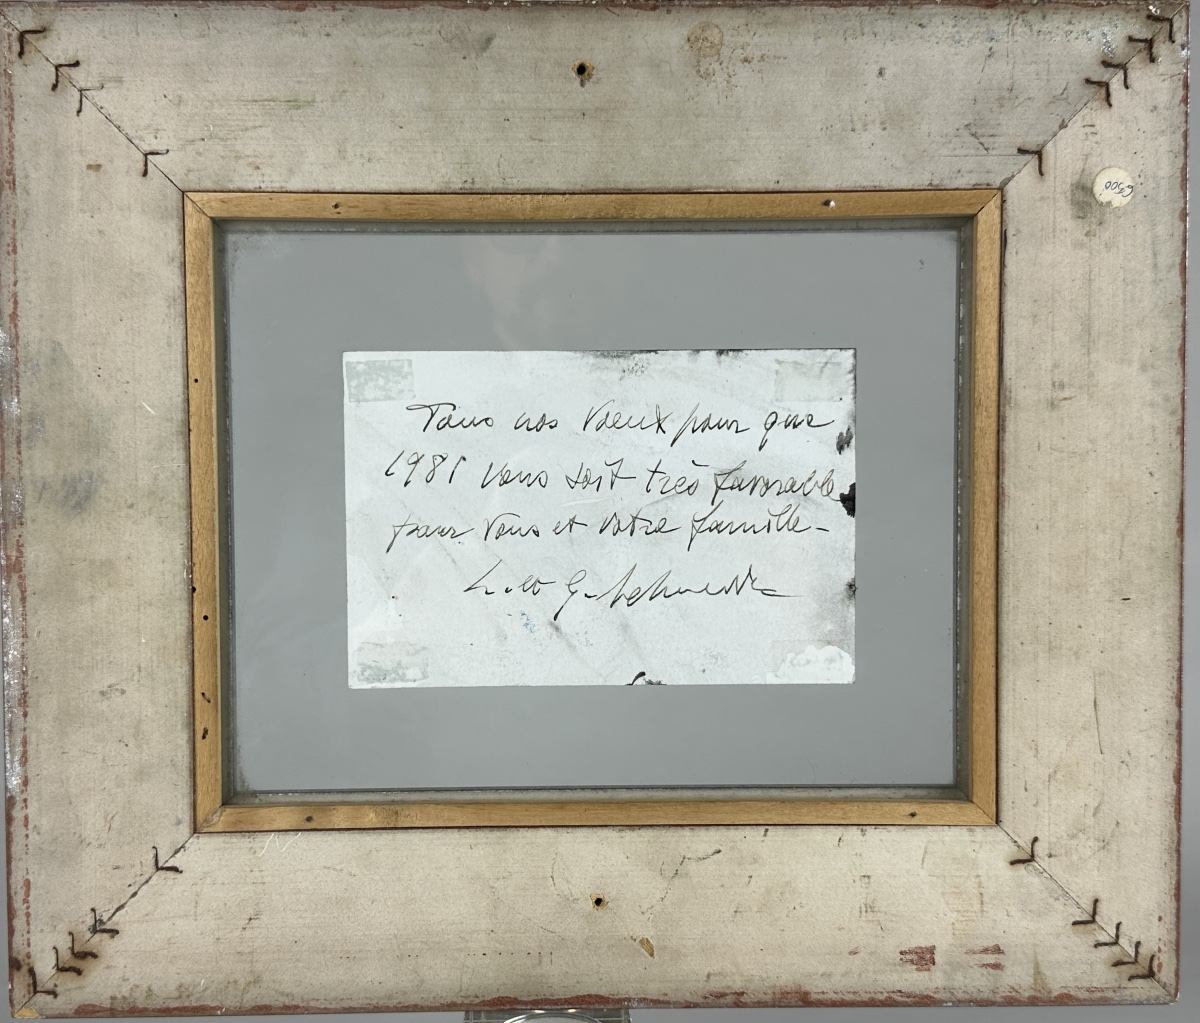 Tous nos Vœux pour que
1981 vous soit très favorable
pour Vous et votre famille -
L. et G. Schneider